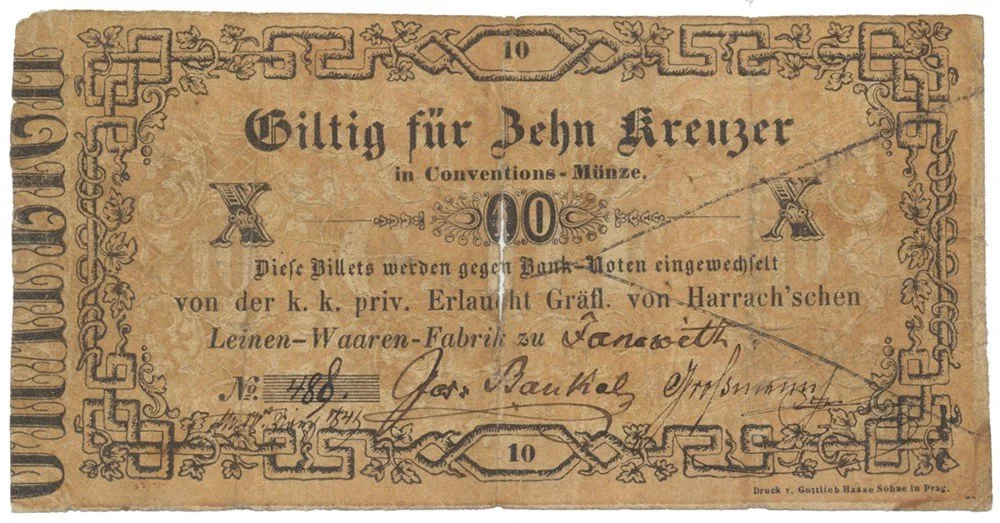 10
Giltig für Zehn Kreuzer
in Conventions-Münze.
X 10 X
Diese Billets werden gegen Bank-Noten eingewechselt
von der k. k. priv. Erlaucht Gräfl. von Harrach'schen
Leinen-Waaren-Fabrik zu Janowith
No. 488.
10
Druck v. Gottlieb Haase Söhne in Prag.